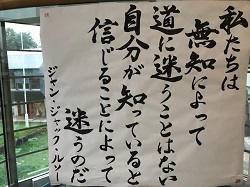 私たちは
無知によって
道に迷うことはない
自分が知っていると
信じることによって
迷うのだ
ジャン・ジャック・ルソー